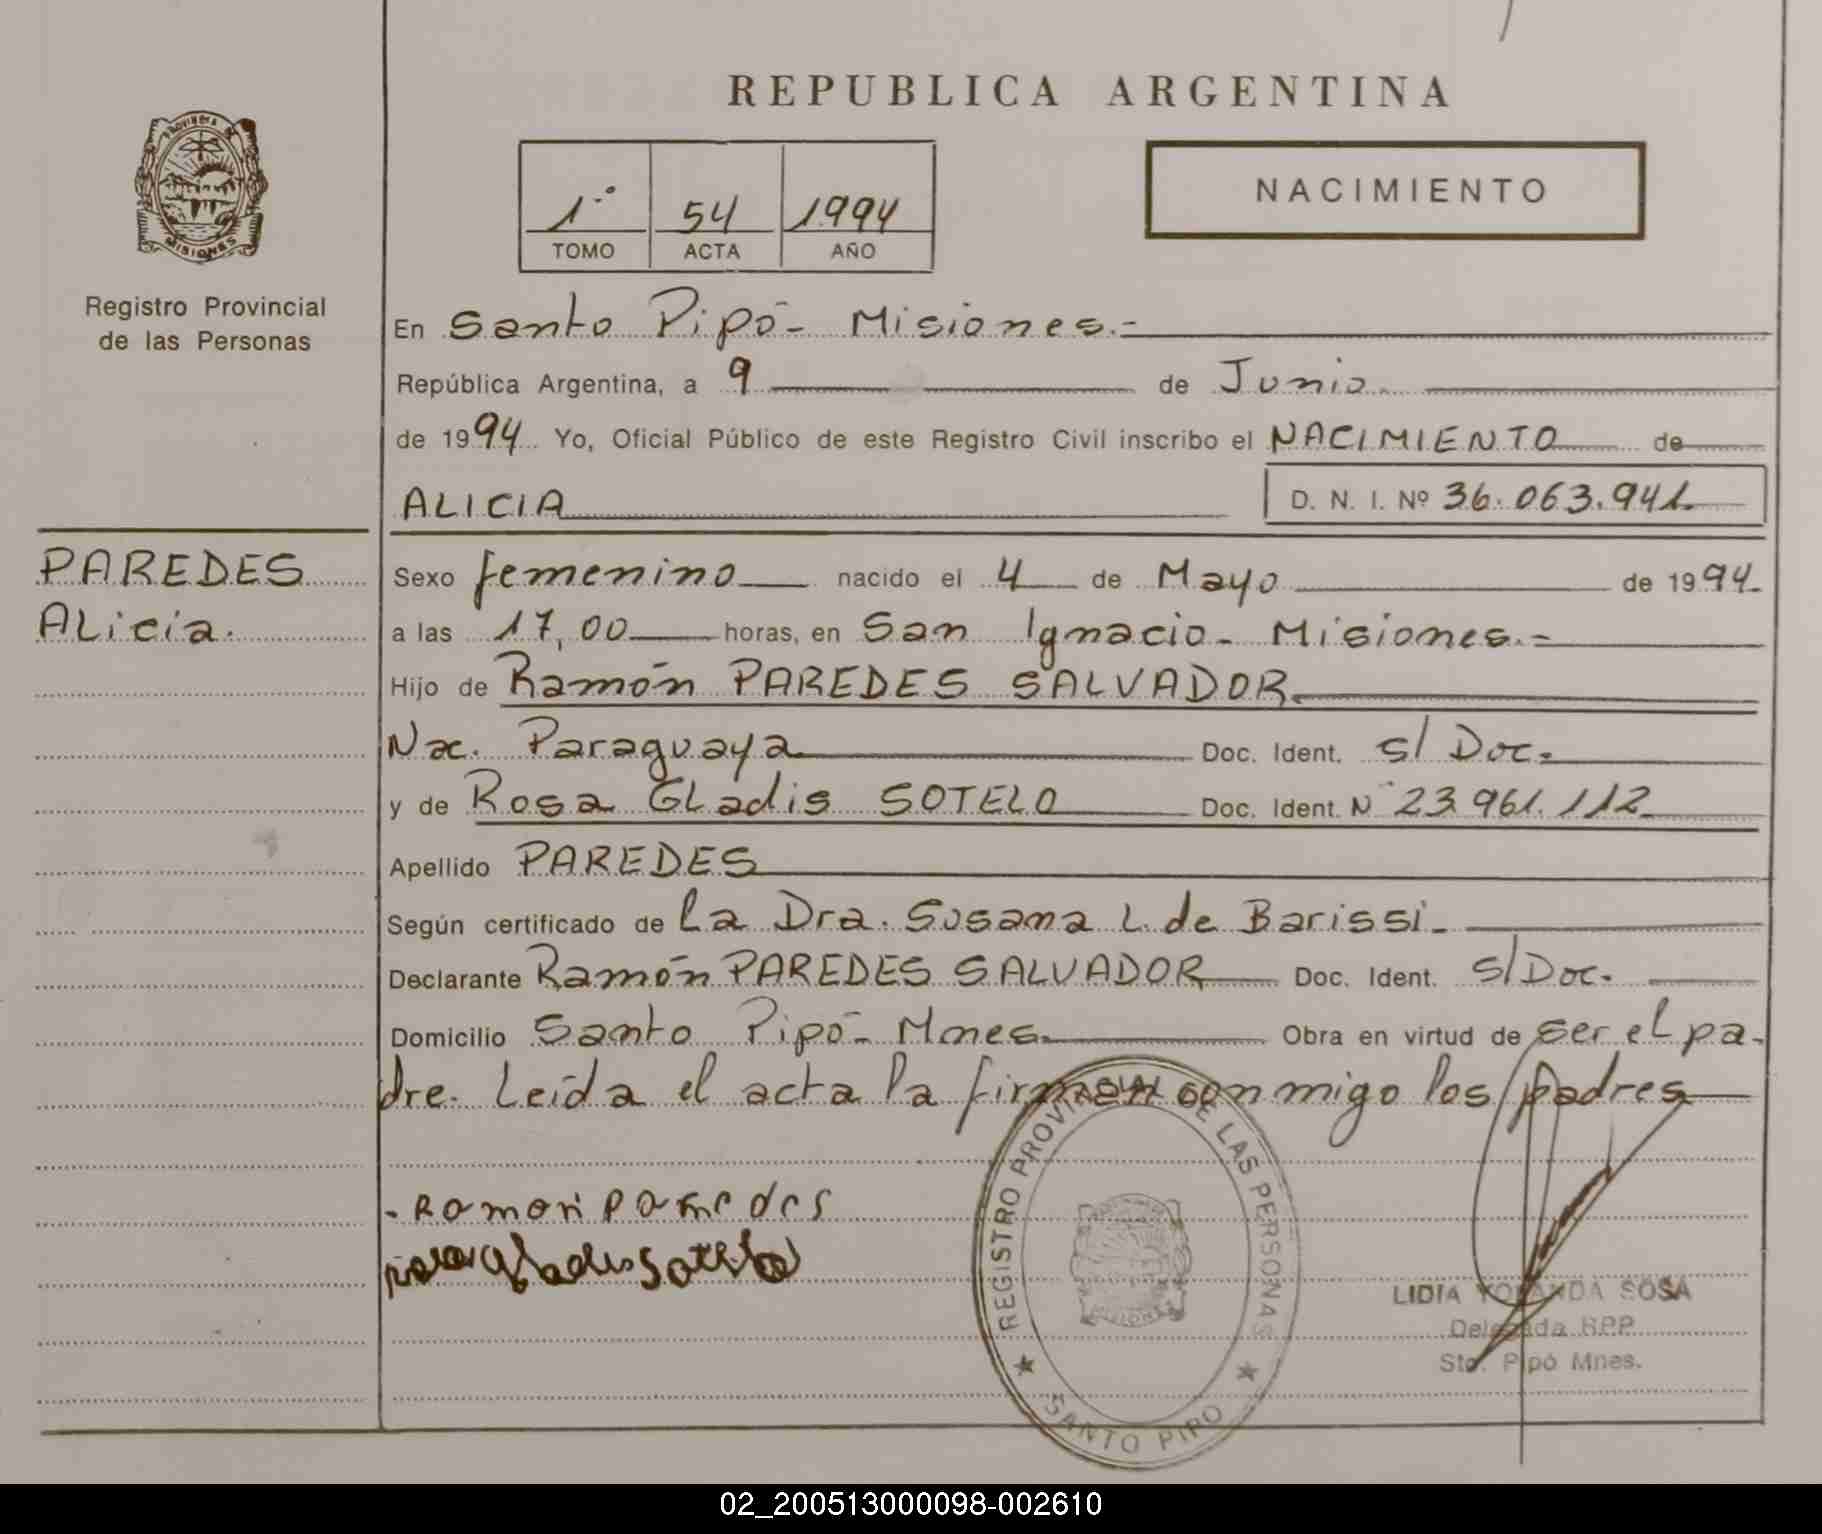 REPUBLICA ARGENTINA
PROVINCIA DE
MISIONES
Registro Provincial
de las Personas
1º 54 1994
TOMO ACTA AÑO
NACIMIENTO
En Santo Pipó- Misiones.-
República Argentina, a 9 de Junio.
de 1994 Yo, Oficial Público de este Registro Civil inscribo el NACIMIENTO de
ALICIA D. N. I. Nº 36.063.941.
PAREDES
Alicia.
Sexo femenino nacido el 4 de Mayo de 1994.
a las 17,00 horas, en San Ignacio- Misiones.-
Hijo de Ramón PAREDES SALVADOR.
Nac. Paraguaya Doc. Ident. s/ Doc.
y de Rosa Gladis SOTELO Doc. Ident. Nº 23.961.112
Apellido PAREDES
Según certificado de la Dra. Susana L. de Barissi.
Declarante Ramón PAREDES SALVADOR Doc. Ident. S/Doc.
Domicilio Santo Pipó- Mnes. Obra en virtud de ser el pa-
dre. Leída el acta la firman conmigo los padres
- Ramon Paredes
Gladis Sotelo
REGISTRO PROVINCIAL DE LAS PERSONAS
SANTO PIPO
LIDIA YOLANDA SOSA
Delegada RPP
Sto. Pipó Mnes.
02_200513000098-002610